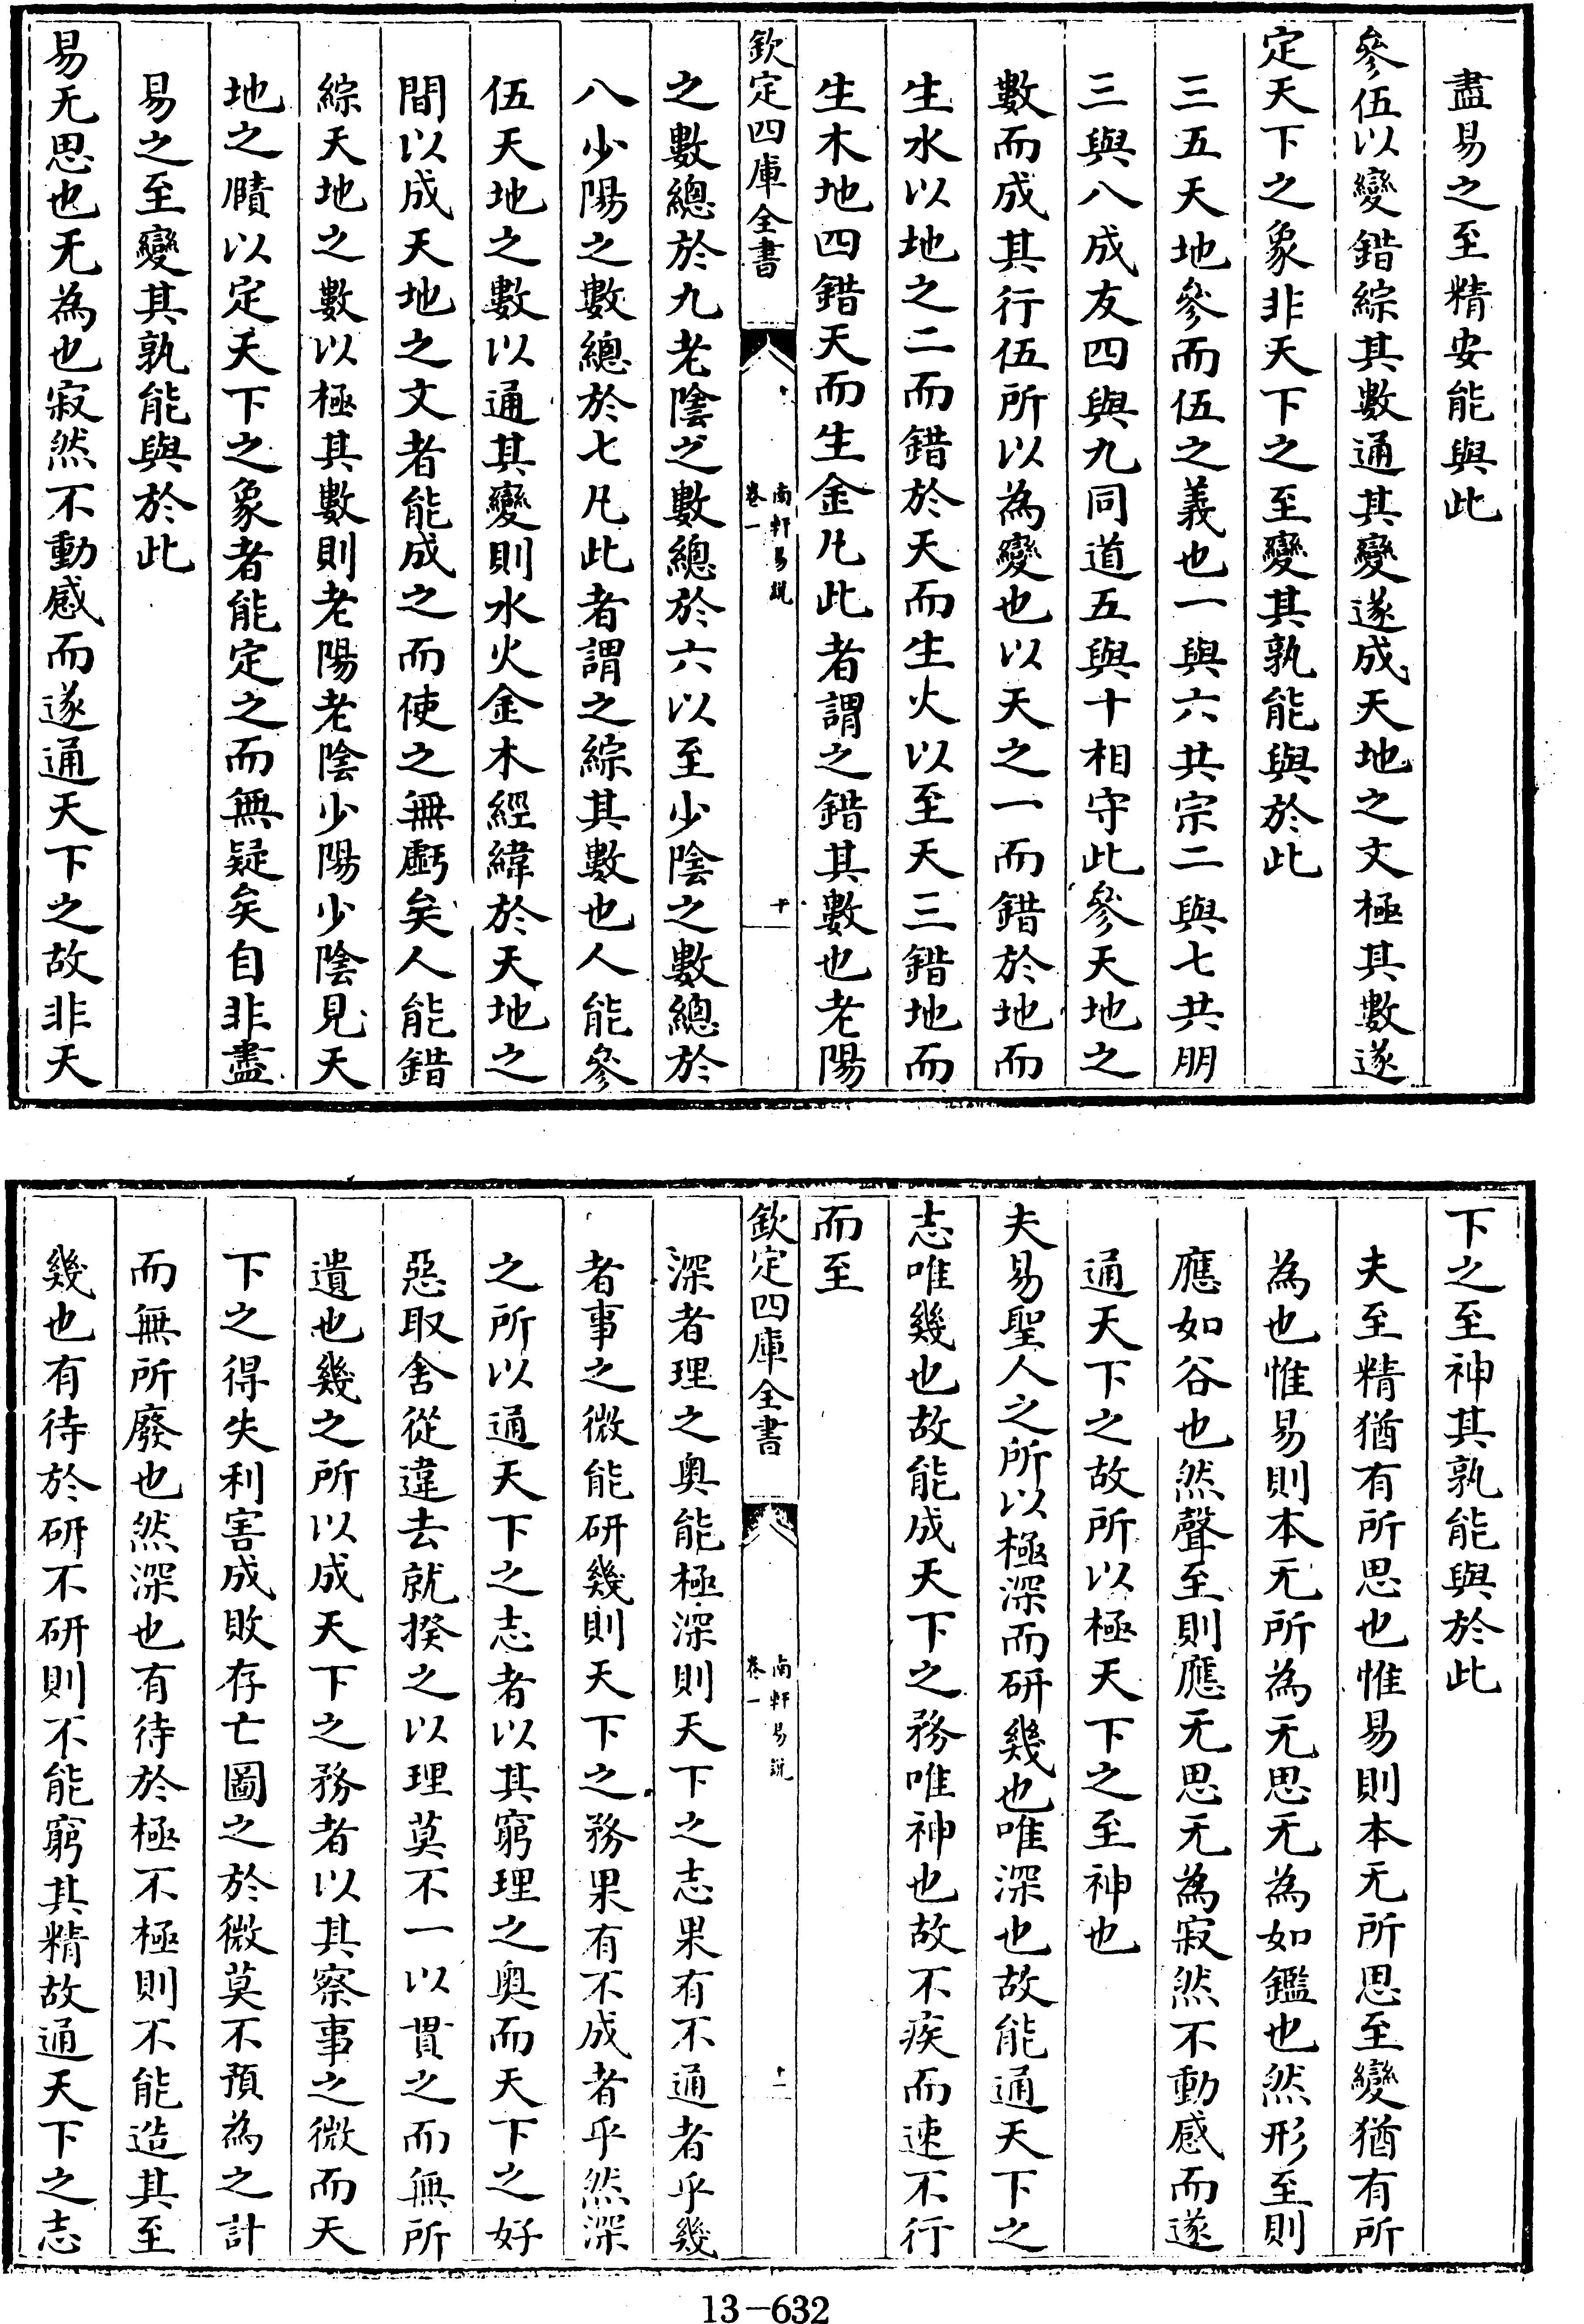 盡易之至精安能與此
參伍以變錯綜其數通其變遂成天地之文極其數遂
定天下之象非天下之至變其孰能與於此
三五天地參而伍之義也一與六共宗二與七共朋
三與八成友四與九同道五與十相守此參天地之
數而成其行伍所以為變也以天之一而錯於地而
生水以地之二而錯於天而生火以至天三錯地而
生木地四錯天而生金凡此者謂之錯其數也老陽
欽定四庫全書
南軒易說
卷一
十
之數總於九老陰之數總於六以至少陰之數總於
八少陽之數總於七凡此者謂之綜其數也人能參
伍天地之數以通其變則水火金木經緯於天地之
間以成天地之文者能成之而使之無虧矣人能錯
綜天地之數以極其數則老陽老陰少陽少陰見天
地之賾以定天下之象者能定之而無疑矣自非盡
易之至變其孰能與於此
易无思也无為也寂然不動感而遂通天下之故非天
下之至神其孰能與於此
夫至精猶有所思也惟易則本无所思至變猶有所
為也惟易則本无所為无思无為如鑑也然形至則
應如谷也然聲至則應无思无為寂然不動感而遂
通天下之故所以極天下之至神也
夫易聖人之所以極深而研幾也唯深也故能通天下之
志唯幾也故能成天下之務唯神也故不疾而速不行
而至
欽定四庫全書
南軒易說
卷一
十一
深者理之奥能極深則天下之志果有不通者乎幾
者事之微能研幾則天下之務果有不成者乎然深
之所以通天下之志者以其窮理之奥而天下之好
惡取舍從違去就揆之以理莫不一以貫之而無所
遺也幾之所以成天下之務者以其察事之微而天
下之得失利害成敗存亡圖之於微莫不預為之計
而無所廢也然深也有待於極不極則不能造其至
幾也有待於研不研則不能窮其精故通天下之志
13-632